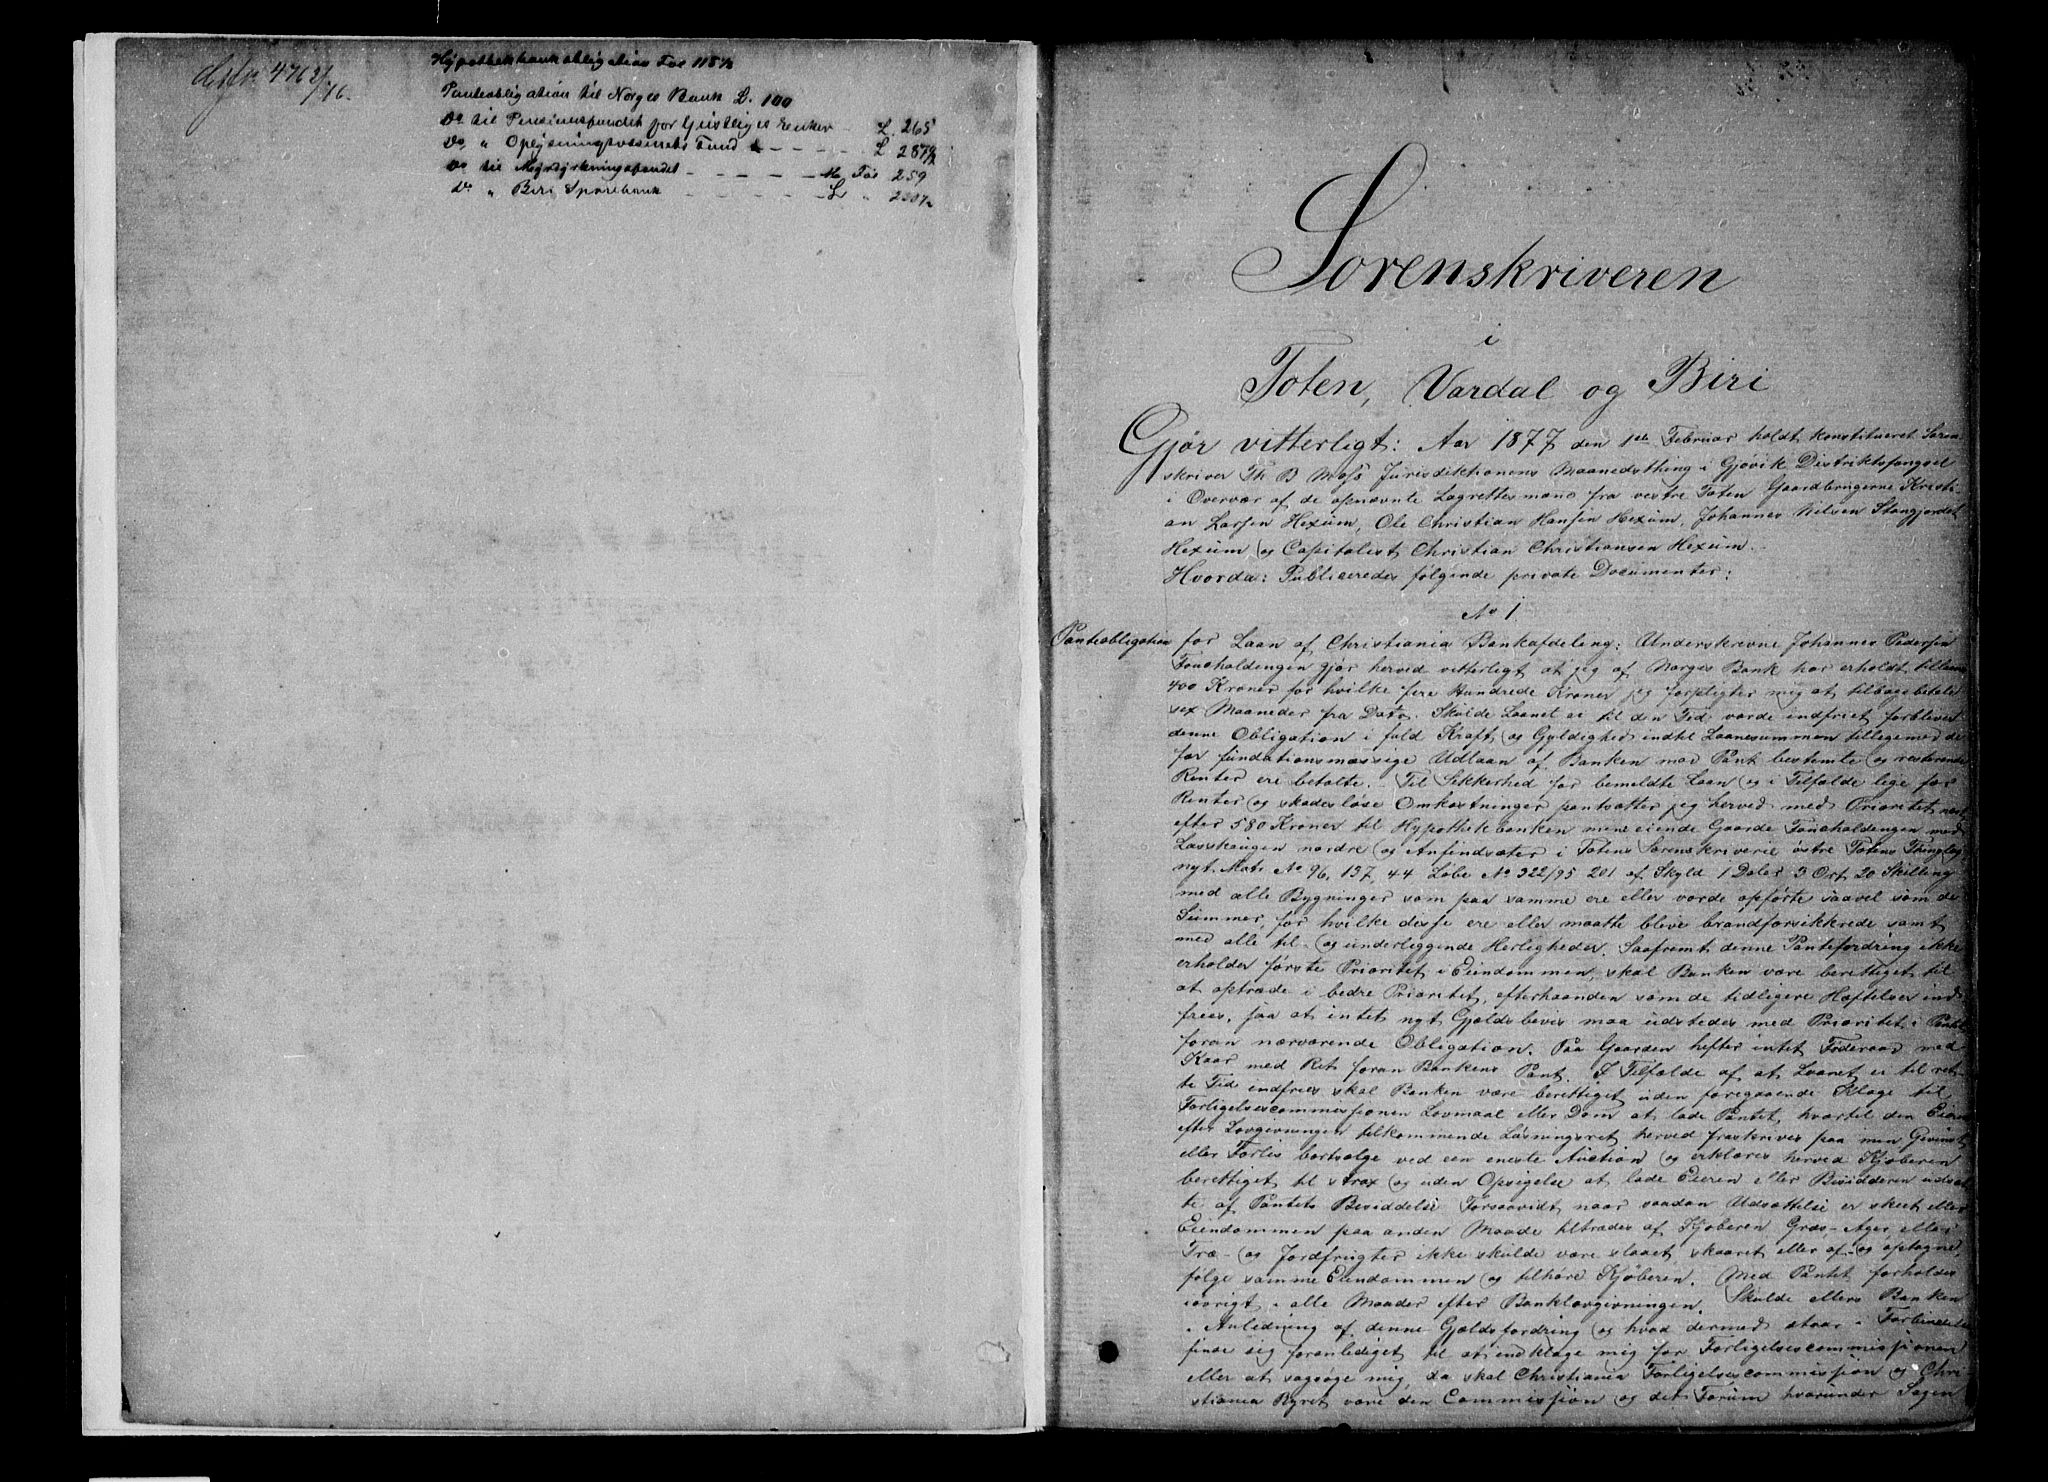 4762/16.
Hypothekbankobligation Fol 118b
Panteobligation til Norges Bank L. 100
Do til Pensionsfondet for Geistliges Enker L. 265
Do " Oplysningsvæsenets Fund L 287b
Do til Myrdyrkningsfondet Fol 259
Do " Biri Sparebank L
Sorenskriveren
i
Toten, Vardal og Biri
Gjør vitterligt: Aar 1877 den 1ste Februar holdt konstitueret Soren-
skriver Th B Moss Jurisdiktionens Maanedsthing i Gjøvik Distriktsfængsel
i Overvær af de opnævnte Lagrettesmænd fra vestre Toten Gaardbrugerne Kristi-
an Larsen Hexum, Ole Christian Hansen Hexum, Johannes Nilsen Stangjordet
Hexum og Capitalist Christian Christiansen Hexum.
Hvorda: Publiceredes følgende private Documenter:
No 1.
Panteobligation for Laan af Christiania Bankafdeling: Underskrevne Johannes Pedersen
gjør herved vitterligt at jeg af Norges Bank har erholdt tillaans
400 Kroner for hvilke fire Hundrede Kroner jeg forpligter mig at tilbagebetale
sex Maaneder fra Dato. Skulde Laanet ei til den Tid vorde indfriet forbliver
denne Obligation i fuld Kraft og Gyldighed indtil Laanesummen tilligemed de
for fundationsmæssige Udlaan af Banken mod Pant bestemte og resterende
Renter ere betalte. Til Sikkerhed for bemeldte Laan og i Tilfælde lige for
Renter og skadesløse Omkostninger pantsætter jeg herved med Prioritet næst
efter 580 Kroner til Hypothekbanken mine eiende Gaarde med
Lasskougen nordre og Anfindsæter i Totens Sorenskriverie østre Totens Thinglag
nyt Matr No 96, 137, 44 Løbe No 322/95 201 af Skyld 1 Daler 3 Ort 20 Skilling
med alle Bygninger som paa samme ere eller vorde opførte saavel som de
Summer, for hvilke disse ere eller maatte blive brandforsikkrede samt
med alle til- og underliggende Herligheder. Saafremt denne Pantefordring ikke
erholder første Prioritet i Eiendommen, skal Banken være berettiget til
at optræde i bedre Prioritet, efterhaanden som de tidligere Hæftelser ind-
fries, saa at intet nyt Gjældsbevis maa udstedes med Prioritet i Pantet
foran nærværende Obligation. Paa Gaarden hefter intet Føderaad med
Kaar med Ret foran Bankens Pant. I Tilfælde af at Laanet ei til ret-
te Tid indfries skal Banken være berettiget uden foregaaende Klage til
Forligelsescommissionen Lovmaal eller Dom at lade Pantet, hvortil den Eieren
efter Lovgivningen tilkommende Løsningsret herved fraskrives paa min Gevinst
eller Forlis bortsælge ved een eneste Auction og erklæres herved Kjøberen
berettiget til strax og uden Opsigelse at lade Eieren eller Besidderen udsæt-
te af Pantets Besiddelse Forsaavidt naar saadan Udsættelse er skeet eller
Eiendommen paa anden Maade tiltrædes af Kjøberen Græs-, Ager, eller
Træ- og Jordfrugter ikke skulde være slaaet, skaaret eller af- og optagne,
følge samme Eiendommen og tilhøre Kjøberen. Med Pantet forholdes
iøvrigt i alle Maader efter Banklovgivningen. Skulde ellers Banken
i Anledning af denne Gjældsfordring og hvad dermed staar i Forbindelse
finde sig foranlediget til at indklage mig for Forligelsescommissionen
eller at sagsøge mig, da skal Christiania Forligelsescommission og Chri-
stiania Byret være den Commission og det Forum hvorunder Sagen